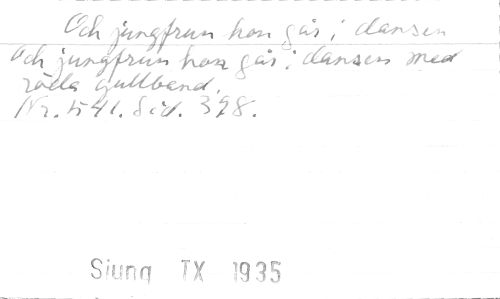 Och jungfrun hon går i dansen
Och jungfrun hon går i dansen med
röda gullband.
Nr. 541. Sid. 398.
Sjung TX 1935